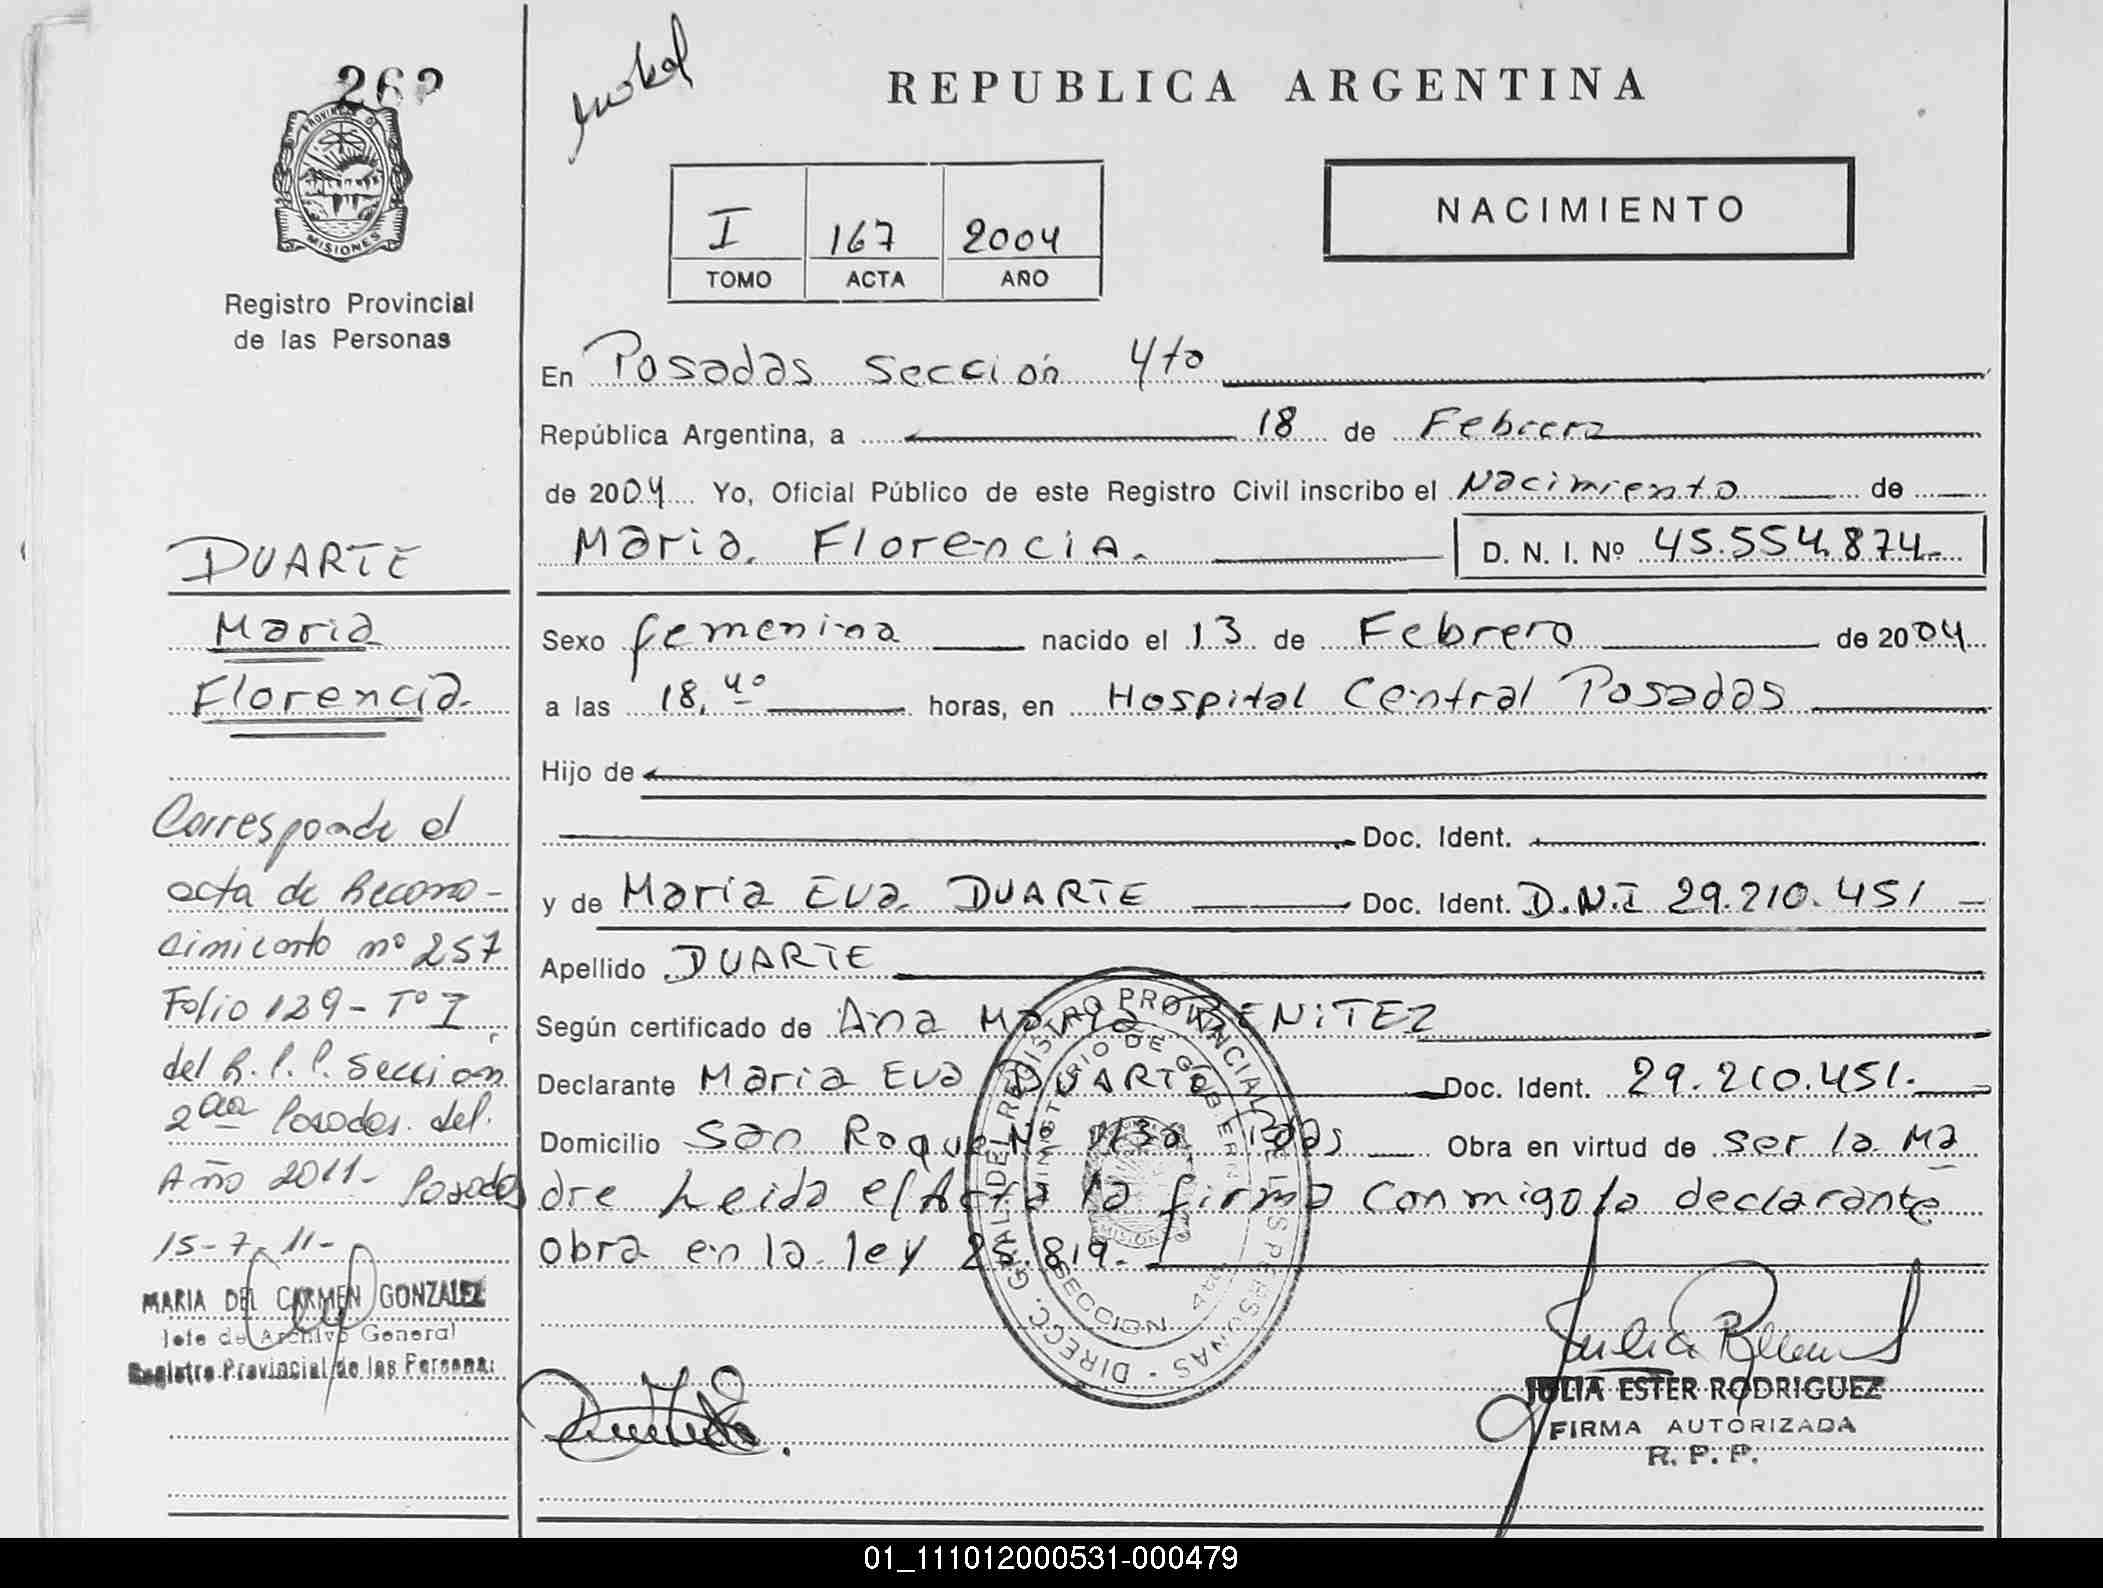 REPUBLICA ARGENTINA
PROVINCIA D
MISIONES
Registro Provincial
de las Personas
I 167 2004
TOMO ACTA AÑO
NACIMIENTO
En Posadas sección 4ta
República Argentina, a 18 de Febrero
de 2004 Yo, Oficial Público de este Registro Civil inscribo el Nacimiento de
Maria Florencia. D. N. I. Nº 45.554.874
Sexo femenina nacido el 13 de Febrero de 2004
a las 18,40 horas, en Hospital Central Posadas
Hijo de
Doc. Ident.
y de Maria Eva DUARTE Doc. Ident. D.N.I 29.210.451
Apellido DUARTE
Según certificado de Ana Maria BENITEZ
Declarante Maria Eva DUARTE Doc. Ident. 29.210.451.
Domicilio San Roque Nº Pdas Obra en virtud de ser la Ma
dre Leida el Acta la firma conmigo la declarante
obra en la ley 25.819.
DIRECC. GRAL. DEL REGISTRO PROVINCIAL DE LAS PERSONAS
MINISTERIO DE GOBIERNO
SECCION
JULIA ESTER RODRIGUEZ
FIRMA AUTORIZADA
R. P. P.
DUARTE
Maria
Florencia.
Corresponde el
acta de Recono-
cimiento nº 257
Folio 129 - Tº I
del R.P.P. Sección
2da Posadas. del.
Año 2011 - Posadas
15-7-11-
MARIA DEL CARMEN GONZALEZ
Jefe de Archivo General
Registro Provincial de las Personas
01_111012000531-000479